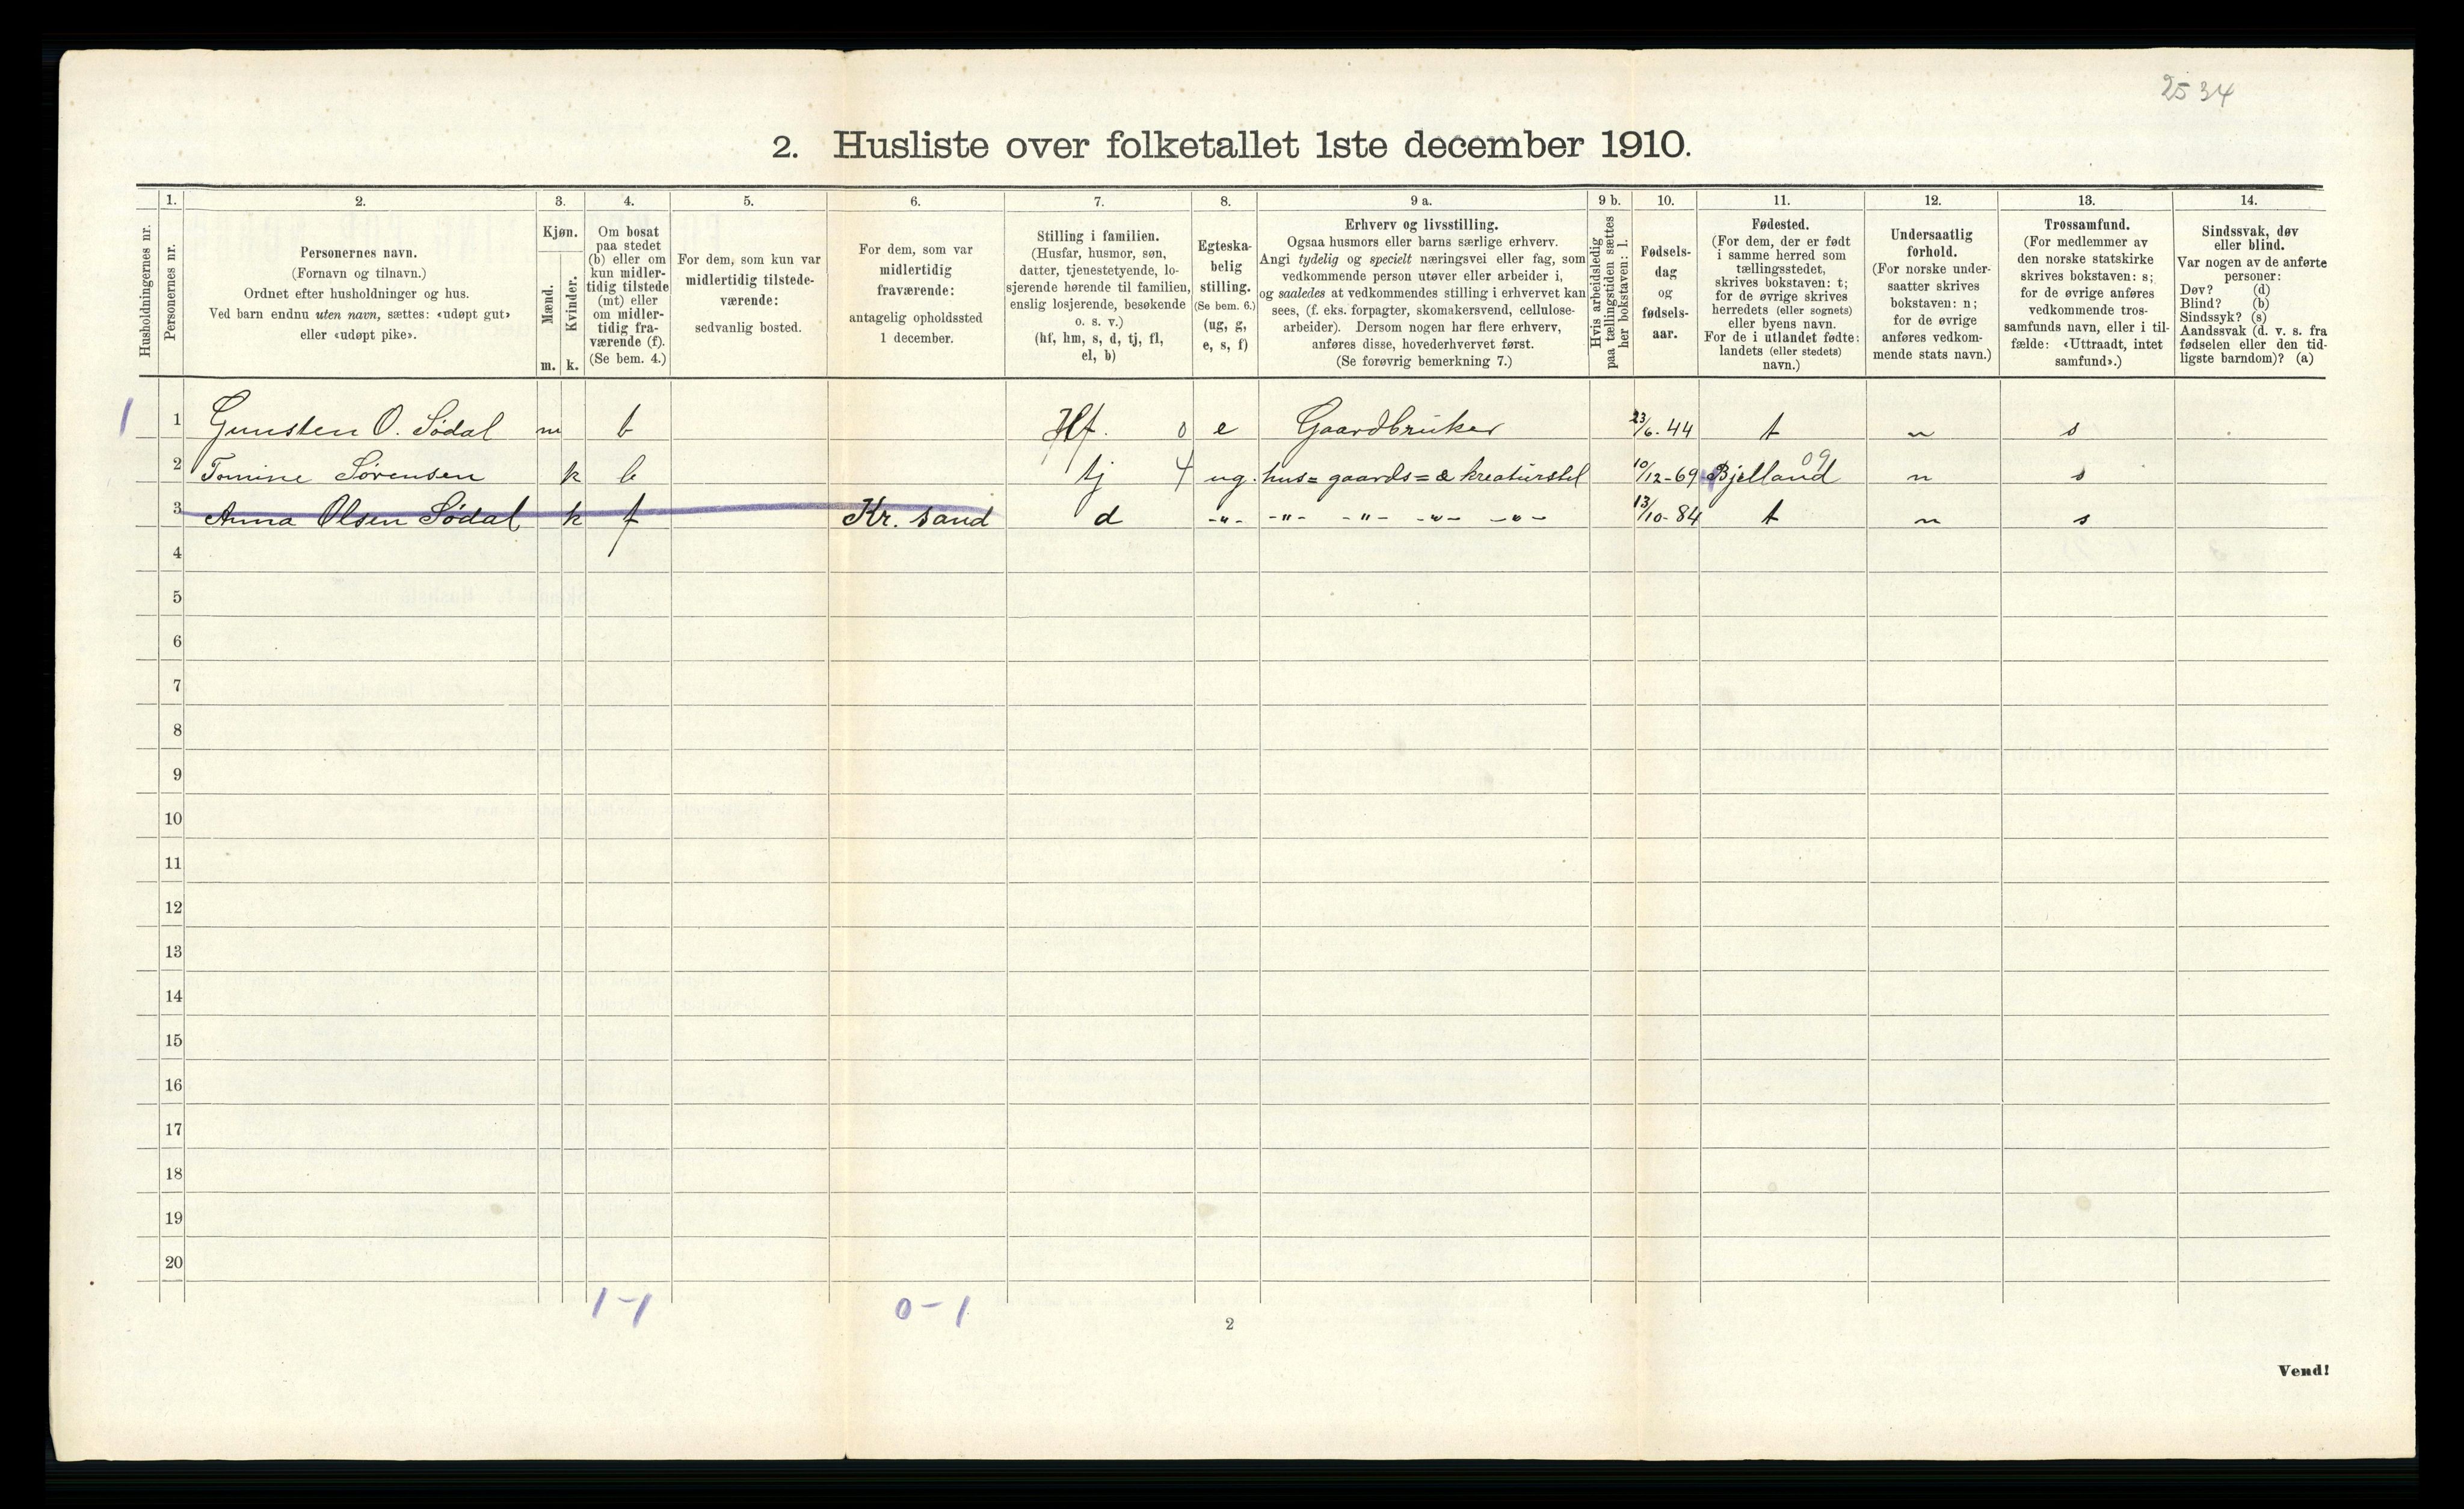 25 34
2. Husliste over folketallet 1ste december 1910.
Husholdningernes nr.
1.
Personernes nr.
2.
Personernes navn.
(Fornavn og tilnavn.)
Ordnet efter husholdninger og hus.
Ved barn endnu uten navn, sættes: «udøpt gut»
eller «udøpt pike».
3.
Kjøn.
Mænd.
m.
Kvinder.
k.
4.
Om bosat
paa stedet
(b) eller om
kun midler-
tidig tilstede
(mt) eller
om midler-
tidig fra-
værende (f).
(Se bem. 4.)
5.
For dem, som kun var
midlertidig tilstede-
værende:
sedvanlig bosted.
6.
For dem, som var
midlertidig
fraværende:
antagelig opholdssted
1 december.
7.
Stilling i familien.
(Husfar, husmor, søn,
datter, tjenestetyende, lo-
sjerende hørende til familien,
enslig losjerende, besøkende
o. s. v.)
(hf, hm, s, d, tj, fl,
el, b)
8.
Egteska-
belig
stilling.
(Se bem. 6.)
(ug, g,
e, s, f)
9 a.
Erhverv og livsstilling.
Ogsaa husmors eller barns særlige erhverv.
Angi tydelig og specielt næringsvei eller fag, som
vedkommende person utøver eller arbeider i,
og saaledes at vedkommendes stilling i erhvervet kan
sees, (f. eks. forpagter, skomakersvend, cellulose-
arbeider). Dersom nogen har flere erhverv,
anføres disse, hovederhvervet først.
(Se forøvrig bemerkning 7.)
9 b.
Hvis arbeidsledig
paa tællingstiden sættes
her bokstaven: l.
10.
Fødsels-
dag
og
fødsels-
aar.
11.
Fødested.
(For dem, der er født
i samme herred som
tællingsstedet,
skrives bokstaven: t;
for de øvrige skrives
herredets (eller sognets)
eller byens navn.
For de i utlandet fødte:
landets (eller stedets)
navn.)
12.
Undersaatlig
forhold.
(For norske under-
saatter skrives
bokstaven: n;
for de øvrige
anføres vedkom-
mende stats navn.)
13.
Trossamfund.
(For medlemmer av
den norske statskirke
skrives bokstaven: s;
for de øvrige anføres
vedkommende tros-
samfunds navn, eller i til-
fælde: «Uttraadt, intet
samfund».)
14.
Sindssvak, døv
eller blind.
Var nogen av de anførte
personer:
Døv? (d)
Blind? (b)
Sindssyk? (s)
Aandssvak (d. v. s. fra
fødselen eller den tid-
ligste barndom)? (a)
1 1 Gunsten O. Sødal m b Hf. 0 e Gaardbruker 23/6-44 t n s
2 Tomine Sørensen k b tj 4 ug. hus= gaards= & kreaturstel 10/12-69 Bjelland 09 n s
3 Anna Olsen Sødal k f Kr. sand d -"- -"- -"- -"- -"- 13/10-84 t n s
4
5
6
7
8
9
10
11
12
13
14
15
16
17
18
19
20
1-1 0-1
2
Vend!